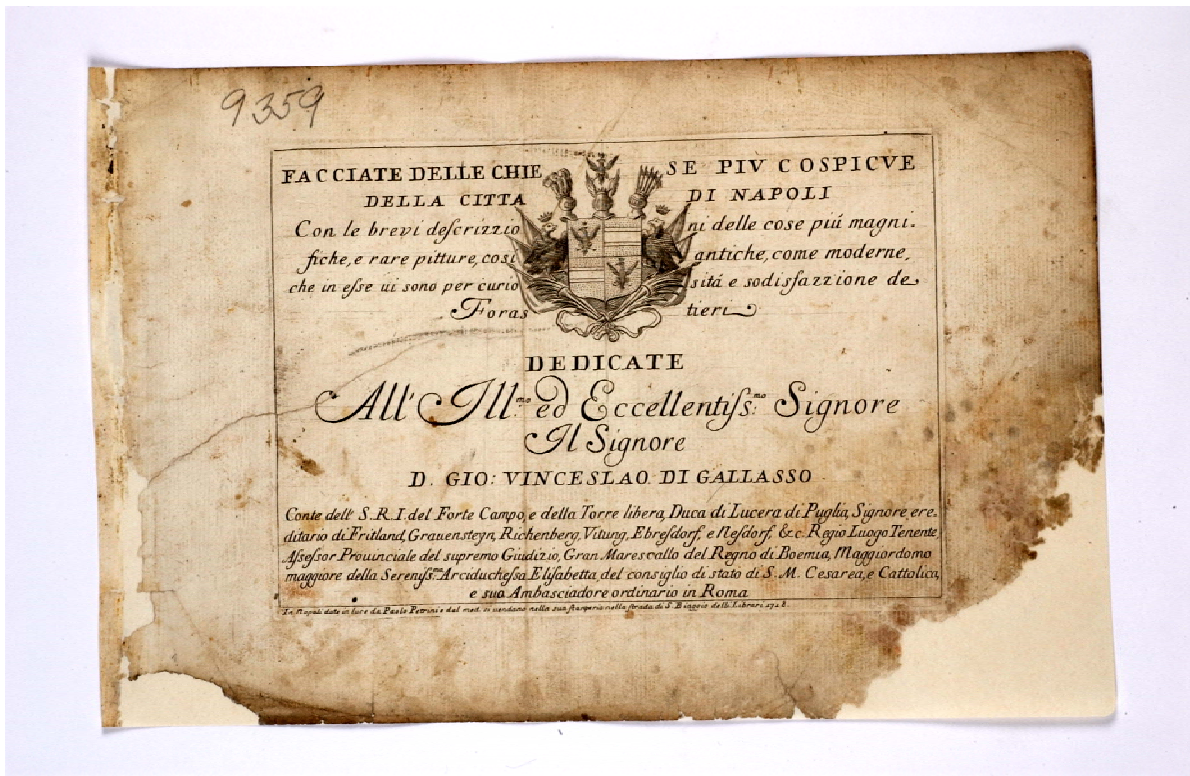 9359
FACCIATE DELLE CHIE SE PIV COSPICVE
DELLA CITTA DI NAPOLI
Con le brevi descrizzio ni delle cose piú magni-
fiche, e rare pitture, cosi antiche, come moderne,
che in esse ui sono per curio sitá e sodisfazzione de
Foras tieri
DEDICATE
All' Ill.mo ed Eccellentiss.mo Signore
Il Signore
D. GIO: VINCESLAO DI GALLASSO
Conte dell' S.R.I. del Forte Campo, e della Torre libera, Duca di Lucera di Puglia, Signore ere-
ditario di Fritland, Grauenstegn, Richenberg, Vitung, Ebresdorf, e Nesdorf, &c. Regio Luogo Tenente,
Assessor Prouinciale del supremo Giudizio, Gran Marescallo del Regno di Boemia, Maggiordomo
maggiore della Sereniss.ma Arciduchessa Elisabetta, del consiglio di stato di S. M. Cesarea, e Cattolica,
e suo Ambasciadore ordinario in Roma
In Napoli dato in luce da Paolo Petrini e dal med. si vendono nella sua stamperia nella strada di S. Biaggio delli Librari 1718